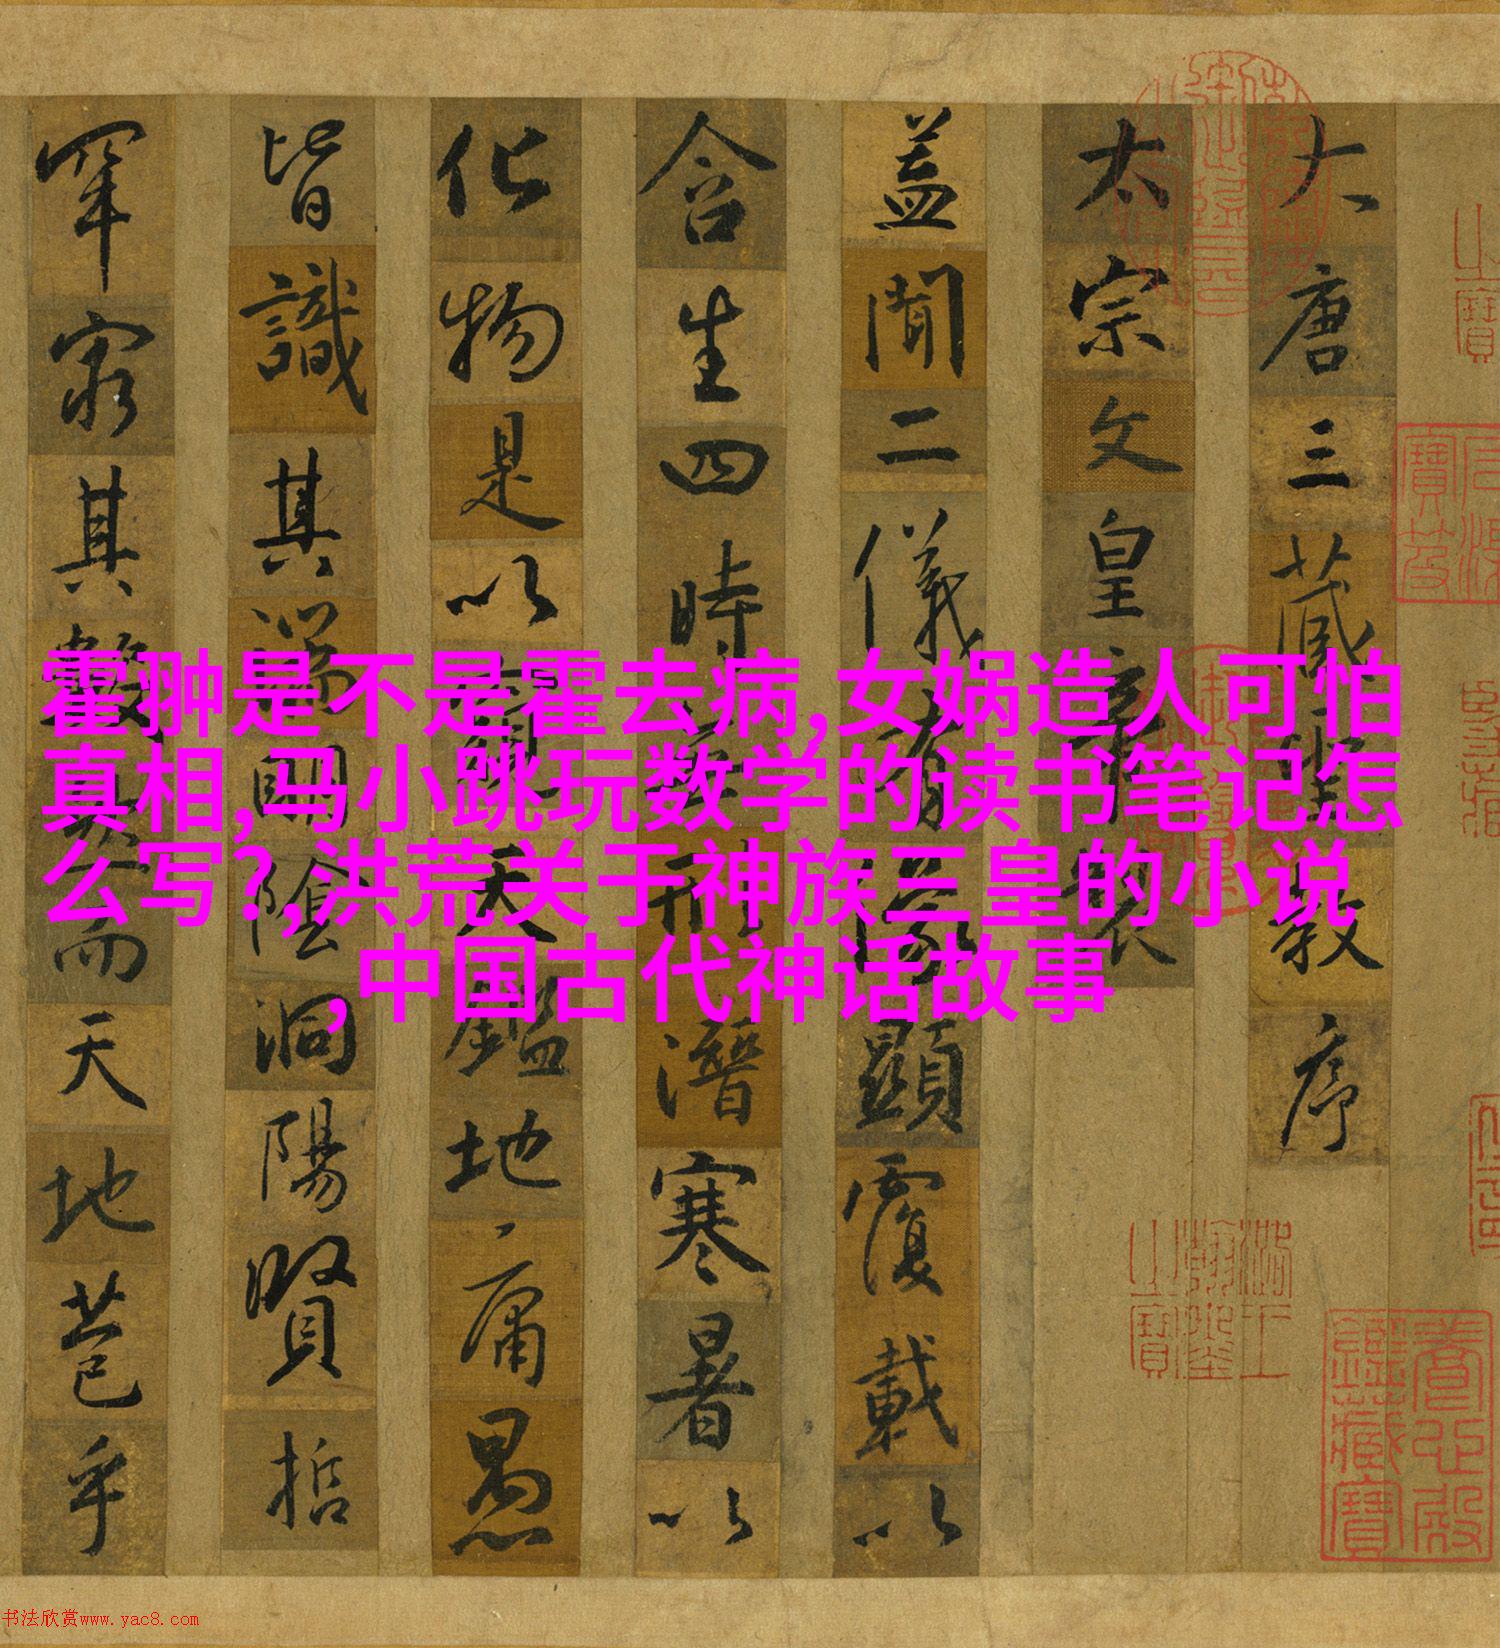 大唐三藏聖教序
太宗文皇帝製
蓋聞二儀有像顯覆載以
含生四時無形潛寒暑以
化物是以窺天鑑地庸愚
皆識其端明陰洞陽賢哲
罕窮其數然而天地苞乎
霍翀是不是霍去病,女娲造人可怕
真相,马小跳玩数学的读书笔记怎
么写?,洪荒关于神族三皇的小说
,中国古代神话故事
石渠寶笈
養心殿鑑藏寶
书法欣赏www.yac8.com